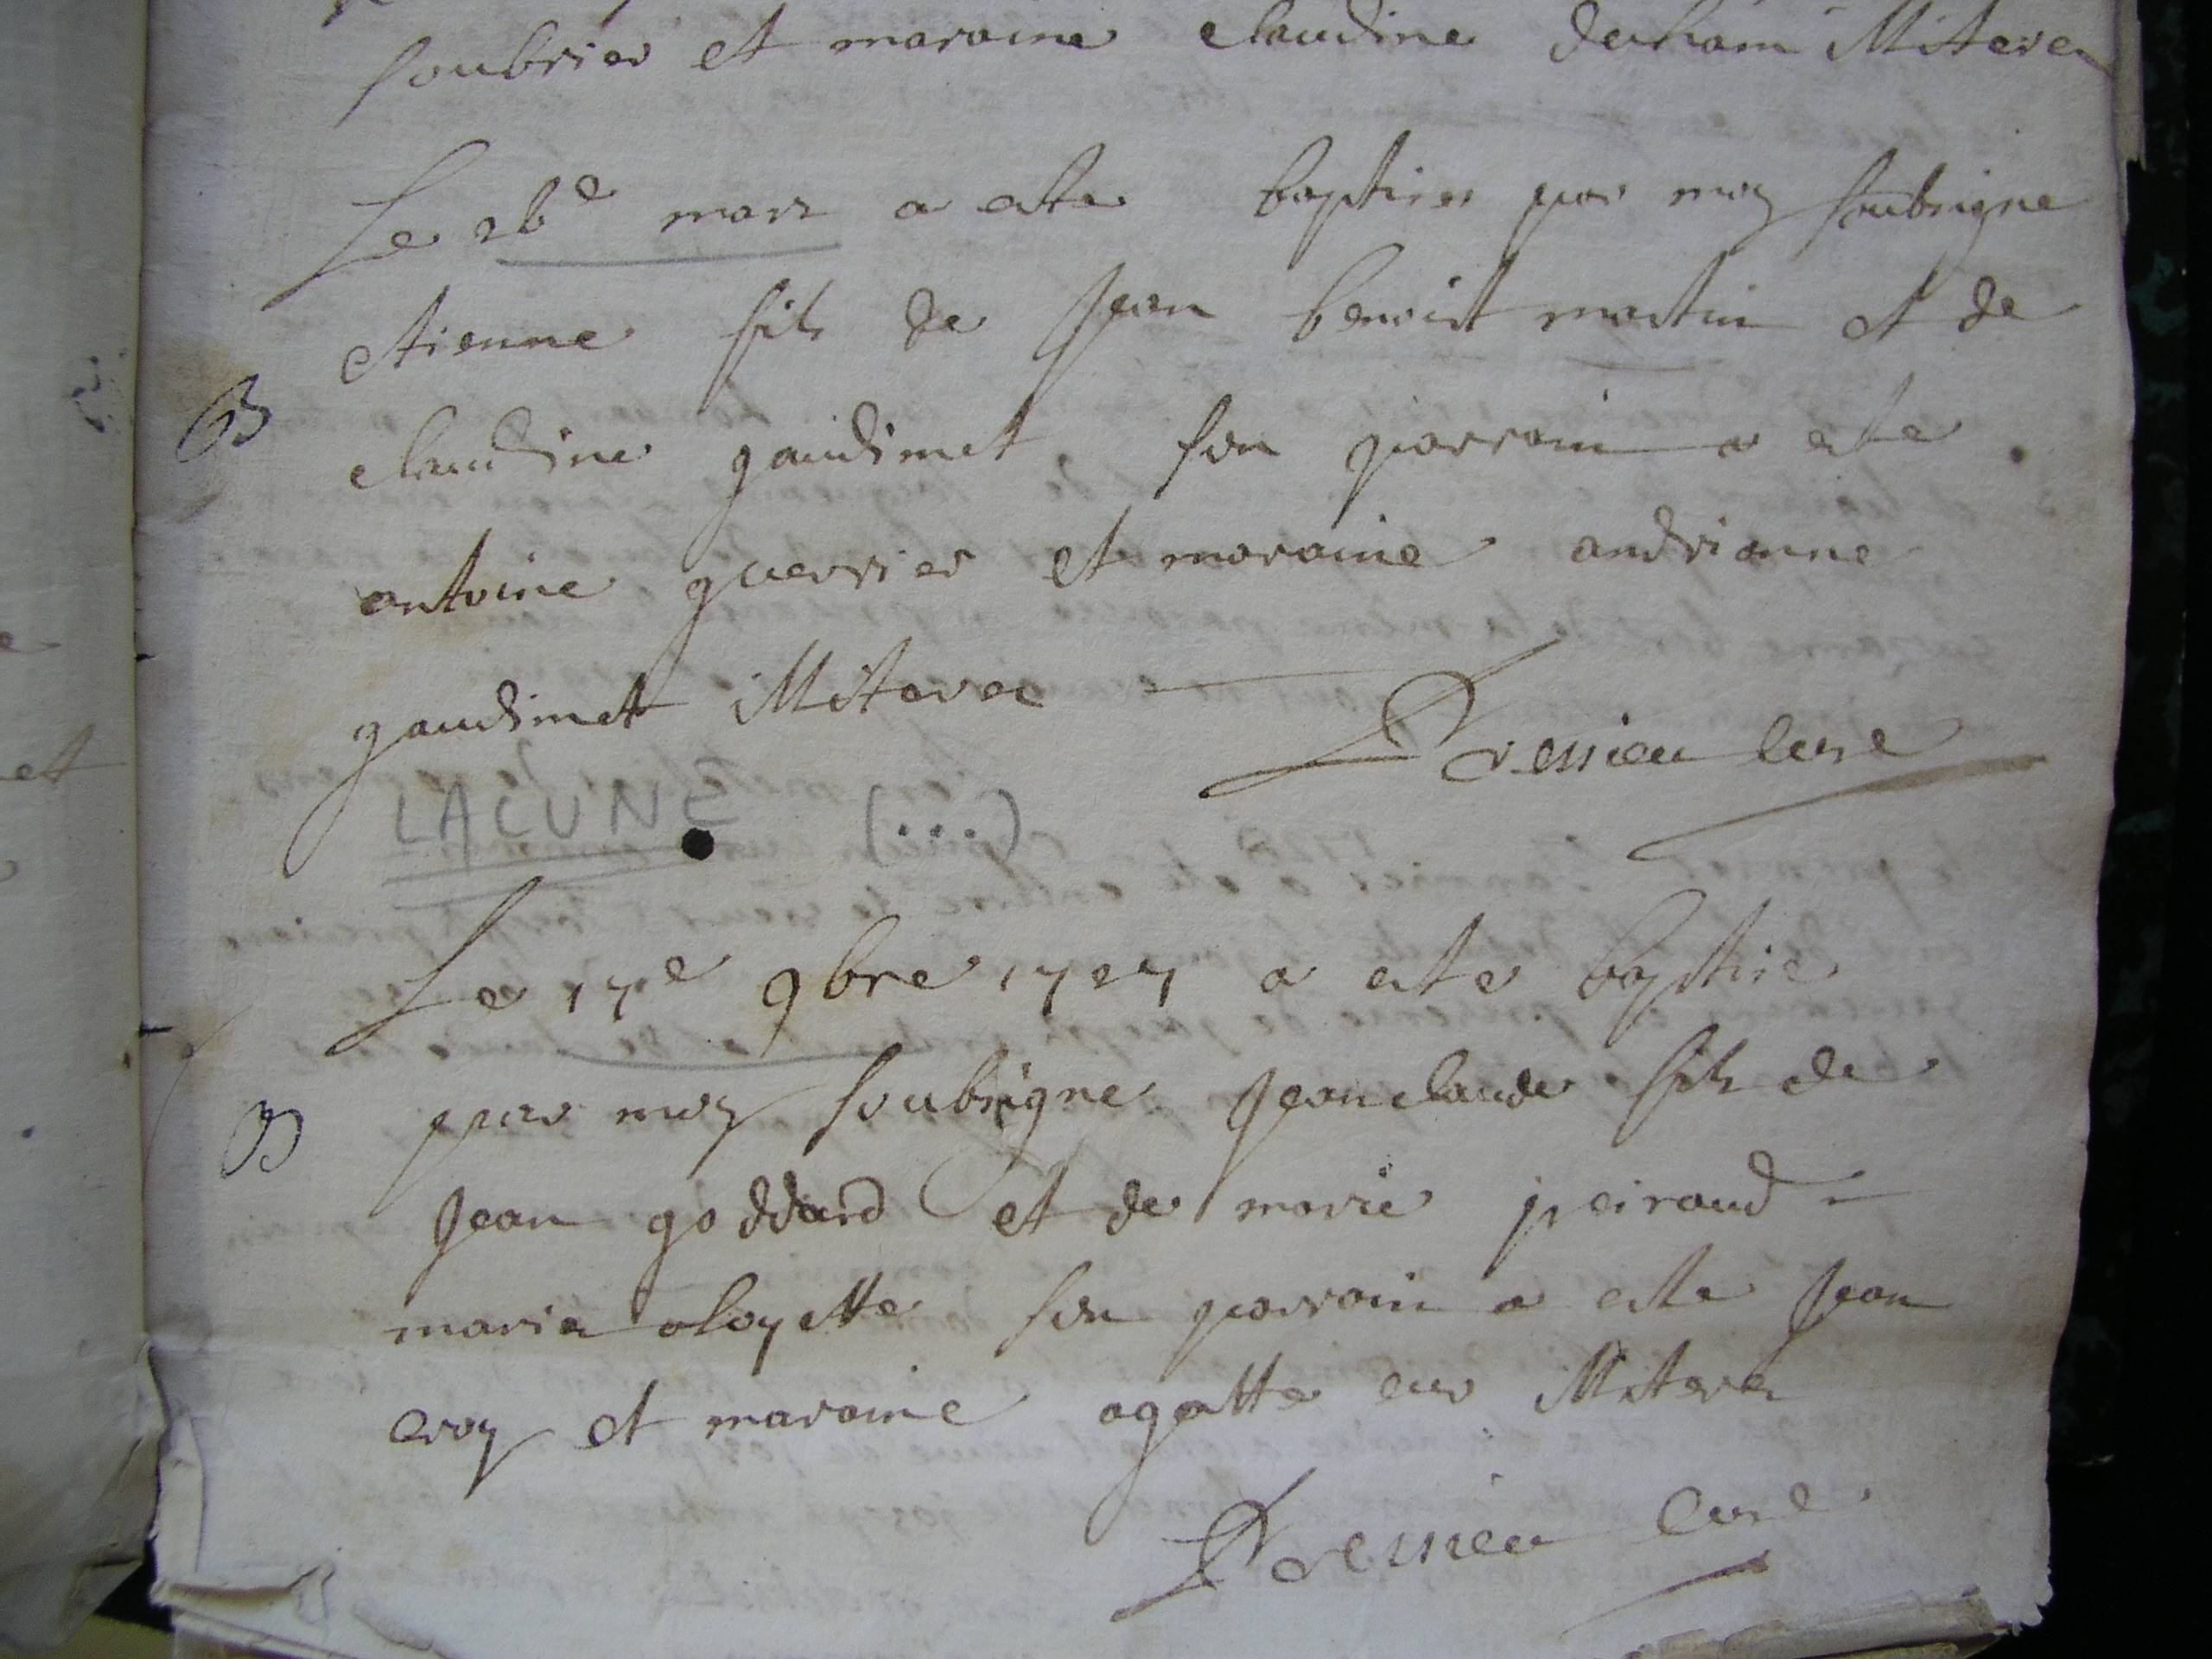 soubrier et maraine claudine descham illiteres
Le 26e mars a este baptises par moy soubsigne
etienne fils de Jean benoist martin et de
B
claudine gaudimet son parrain a este
antoine guerrier et maraine andrianne
gaudimet illiteres
Dressieu cure
LACUNE (...)
Le 17e 9bre 1727 a este baptise
B
par moy soubsigne Jean claude fils de
Jean goddard et de marie peiraud
maria aloyette son parrain a este Jean
croy et maraine agatte cur illiteres
Dressieu cure